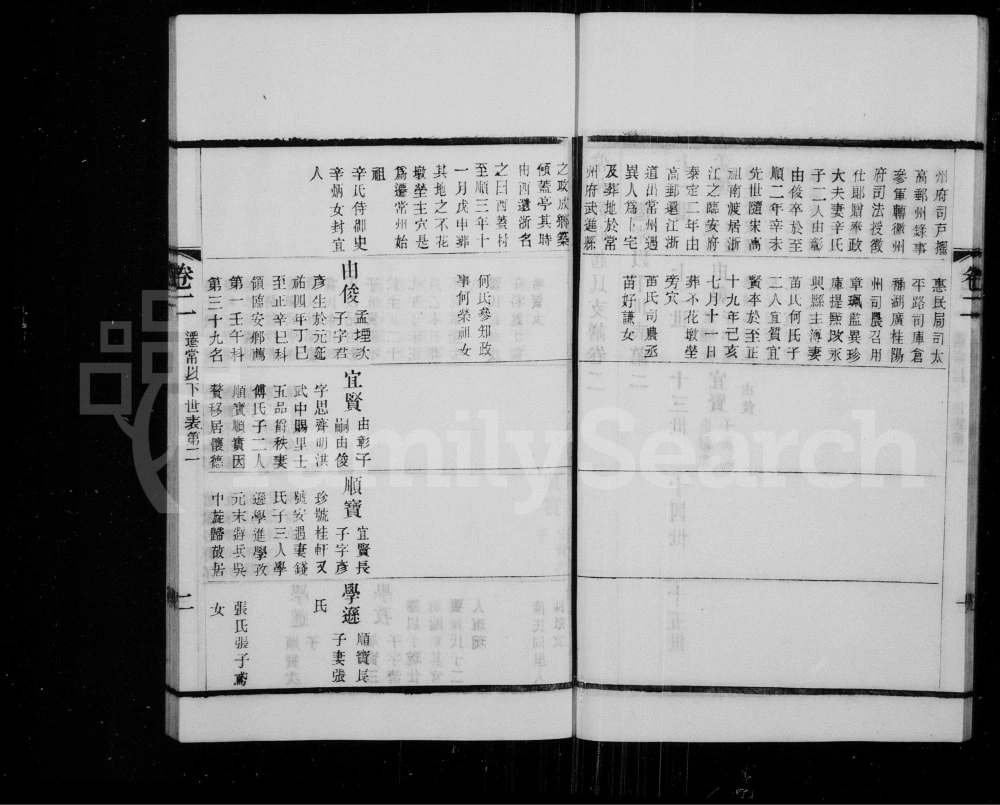 卷二
州府司戶擢
高郵州錄事
參軍轉徽州
府司法授徵
仕郎贈奉政
大夫妻辛氏
子二人由彰
由俊卒於至
順二年辛未
先世隨宋高
祖南渡居浙
江之臨安府
泰定二年由
高郵還江浙
道出常州遇
異人為卜宅
及葬地於常
州府武進縣
惠民局司太
平路司庫倉
神湖廣桂陽
州司農召用
章珮監異珍
庫提點改永
興縣主簿妻
苗氏何氏子
二人宜賢宜
賢卒於至正
十九年己亥
七月十一日
葬不花墩塋
旁穴
苗氏司農丞
苗好謙女
之政成鄉築
傾蓋亭其時
由西還浙名
之曰西蓋村
至順三年十
一月戊申葬
其地之不花
墩塋主穴是
為遷常州始
祖
辛氏侍御史
辛炳女封宜
人
何氏參知政
事何榮祖女
由俊 孟堙次
子字君
彥生於元延
祐四年丁巳
至正辛巳科
領臨安鄉薦
第一壬午科
第三十九名
宜賢 由彰子
嗣由俊
字思齊明洪
武中賜里士
五品爵秩妻
傅氏子二人
順寶順賓因
贅移居懷德
順寶 宜賢長
子字彥
珍號桂軒又
號安遇妻錢
氏子三人學
遜學進學孜
元末避兵吳
中旋歸故居
學遜 順寶長
子妻張
氏
張氏張子鳶
女
卷二
遷常以下世表第二
二
FamilySearch